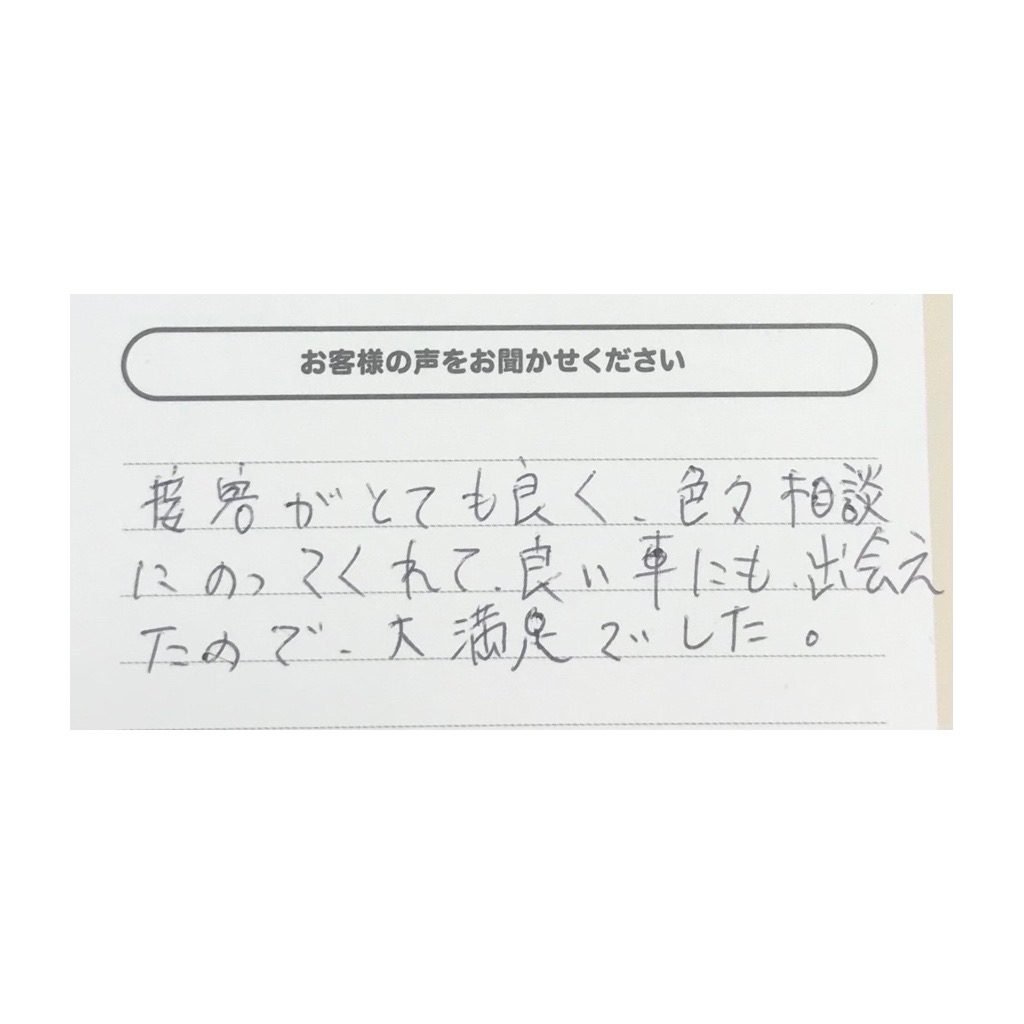 お客様の声をお聞かせください
接客がとても良く、色々相談
にのってくれて、良い車にも、出会え
たので、大満足でした。